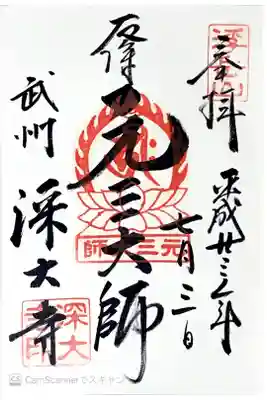 奉拝
平成廿三年
七月三日
元三大師
武州
深大寺
浮岳山
元三大師
深大寺印
CS CamScannerでスキャン